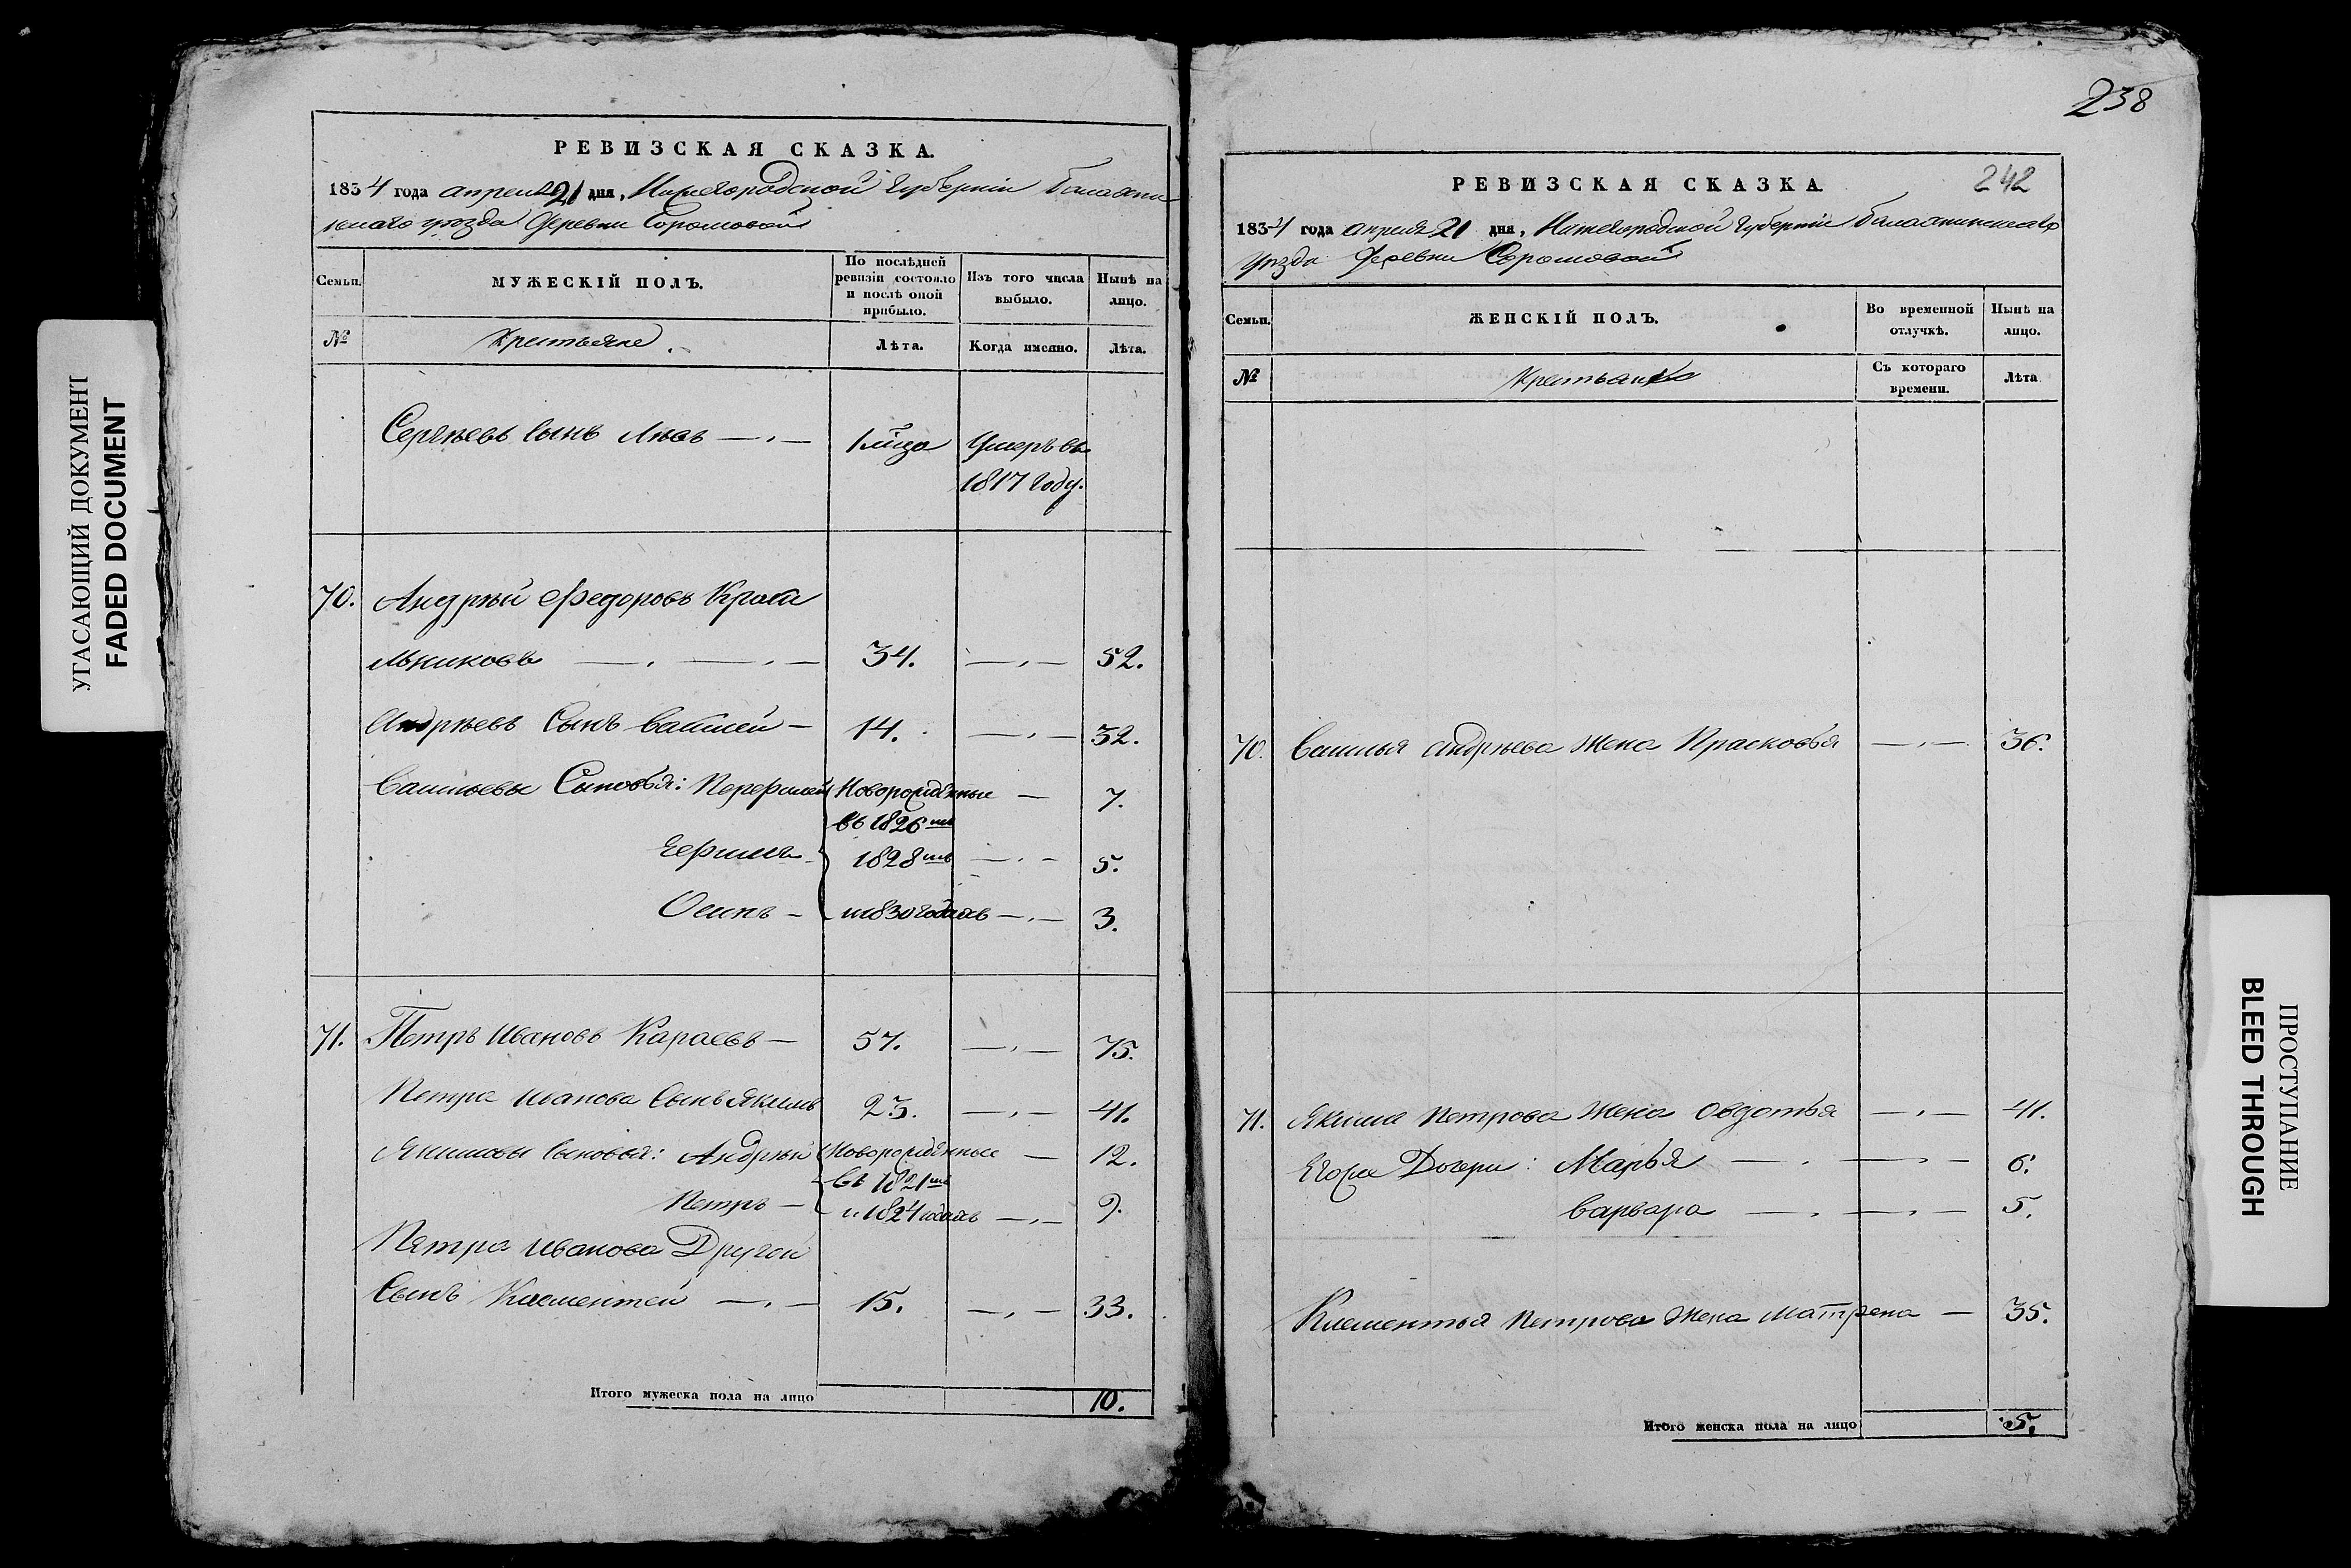 УГАСАЮЩИЙ ДОКУМЕНТ
FADED DOCUMENT
РЕВИЗСКАЯ СКАЗКА.
1834 года апреля 21 дня, Нижегородской Губернiи Балахни
нскаго уѣзда Деревни Соромовой
Семьи.
МУЖЕСКІЙ ПОЛЪ.
По послѣдней ревизіи состояло и послѣ оной прибыло.
Изъ того числа выбыло.
Нынѣ на лицо.
№
Крестьяне
Лѣта.
Когда именно.
Лѣта.
Сергѣевъ сынъ Левъ Умеръ въ
1817 году.
70. Андрѣй Федоровъ
льниковъ 34. 52.
Андрѣевъ Сынъ Василей 14. 32.
Васильевы Сыновья: Перфилей Новорожденные 7.
въ 1826мъ
1828мъ 5.
Осипъ и 1830 годахъ 3.
71. Петръ Ивановъ Караевъ 57. 75.
Петра Иванова Сынъ Якимъ 23. 41.
Якимовы сыновья: Андрѣй Новорожденные 12.
въ 1821мъ
Петръ и 1824 годахъ 9.
Петра Иванова Другой
Сынъ Клементей 15. 33.
Итого мужеска пола на лицо 10.
238
РЕВИЗСКАЯ СКАЗКА 242
1834 года апреля 21 дня, Нижегородской Губернiи Балахнинскаго
уѣзда Деревни Соромовой
Семьи.
ЖЕНСКІЙ ПОЛЪ.
Во временной отлучкѣ.
Нынѣ на лицо.
№
Крестьянки
Съ котораго времени.
Лѣта
70. Василья Андрѣева жена Прасковья 36.
71. Якима Петрова жена Овдотья 41.
Егоже Дочери: Марья 6.
Варвара 5.
Клементья Петрова жена Матрена 35.
Итого женска пола на лицо 5.
ПРОСТУПАНИЕ
BLEED THROUGH